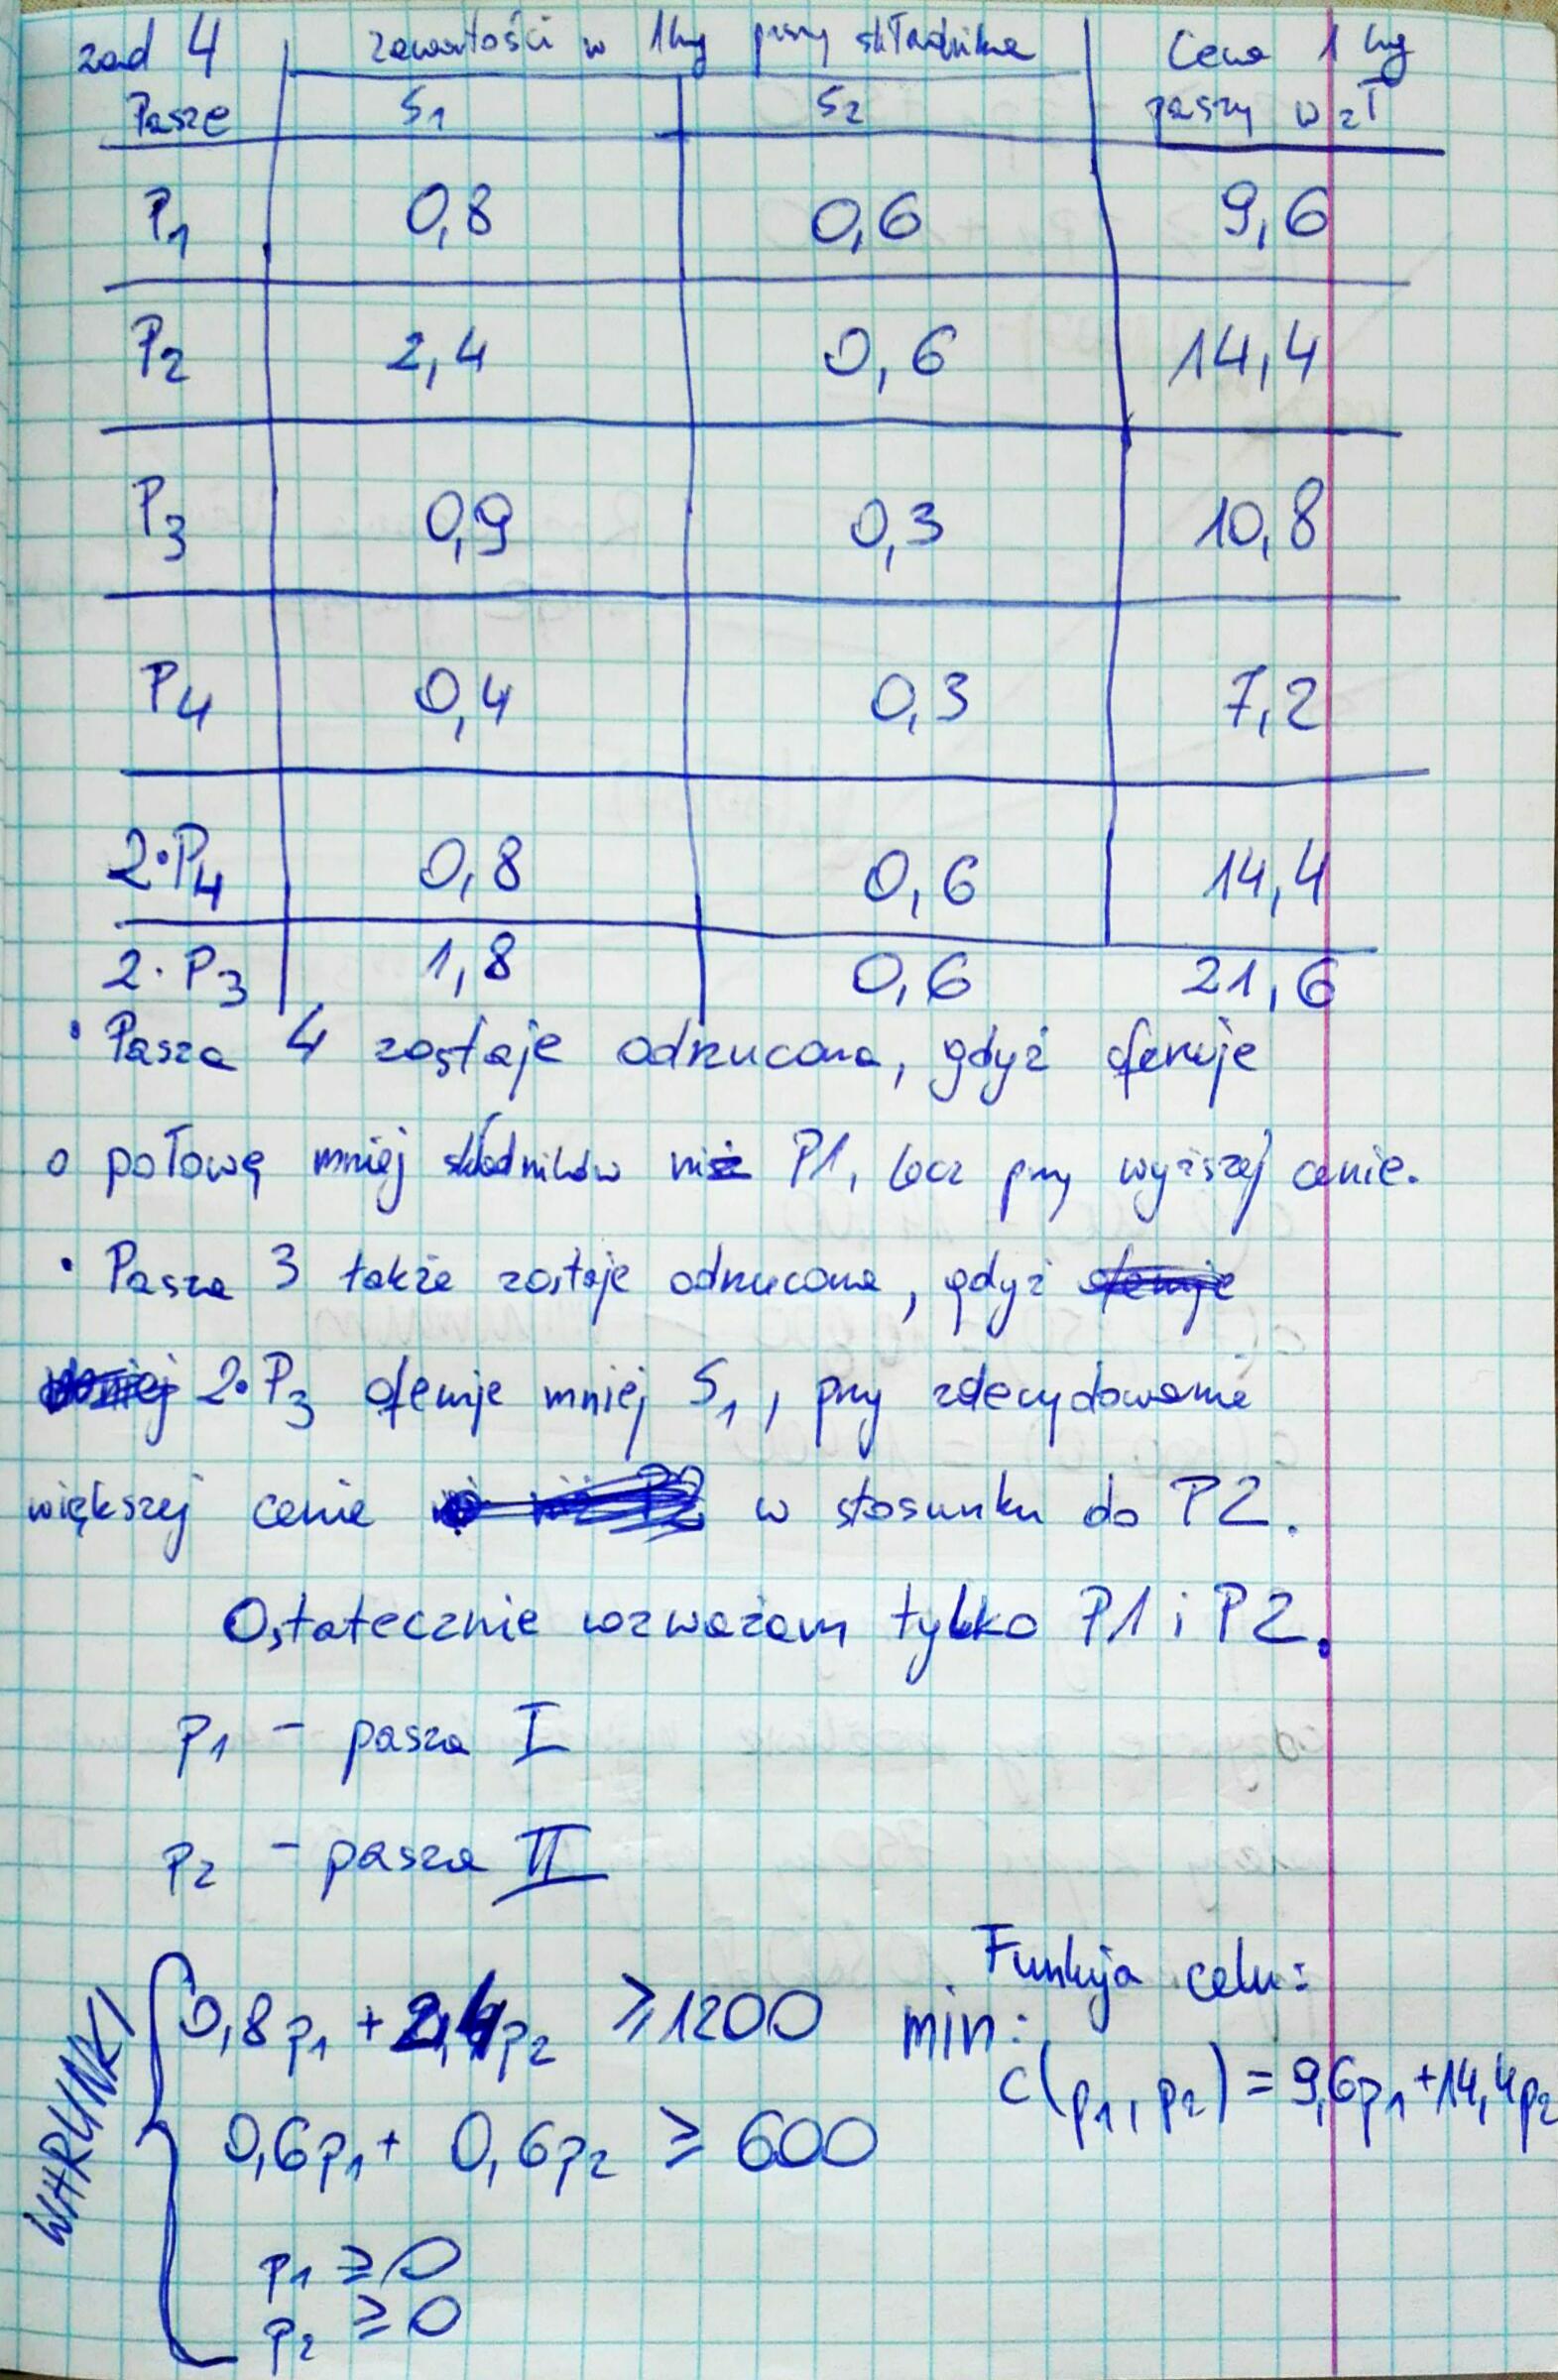 zad 4 zawartości w 1kg paszy składnika Cena 1 kg
Pasze S1 S2 paszy w zł
P1 0,8 0,6 9,6
P2 2,4 0,6 14,4
P3 0,9 0,3 10,8
P4 0,4 0,3 7,2
2·P4 0,8 0,6 14,4
2·P3 1,8 0,6 21,6
· Pasza 4 zostaje odrzucona, gdyż oferuje
o połowę mniej składników niż P1, lecz przy wyższej cenie.
· Pasza 3 także zostaje odrzucona, gdyż oferuje
mniej 2·P3 oferuje mniej S1, przy zdecydowanie
większej cenie w stosunku do P2.
Ostatecznie rozważam tylko P1 i P2.
p1 - pasza I
p2 - pasza II
WARUNKI
0,8p1 + 2,4p2 ≥ 1200
0,6p1 + 0,6p2 ≥ 600
p1 ≥ 0
p2 ≥ 0
Funkcja celu:
min:
c(p1, p2) = 9,6p1 + 14,4p2